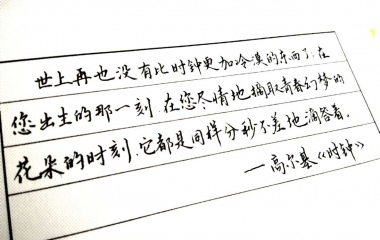 世上再也没有比时钟更加冷漠的东西了.在
您出生的那一刻.在您尽情地摘取青春幻梦的
花朵的时刻.它都是同样分秒不差地滴答着.
—高尔基《时钟》